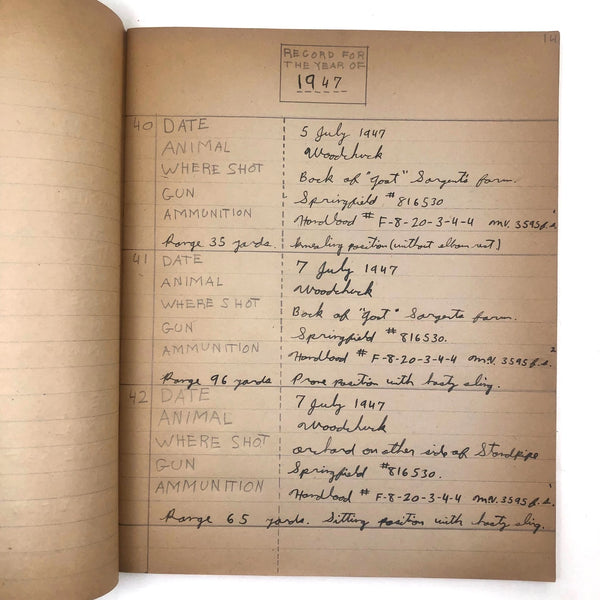 14
RECORD FOR
THE YEAR OF
1947
40 DATE 5 July 1947
ANIMAL Woodchuck
WHERE SHOT Back of "Goat" Sargent's farm.
GUN Springfield #816530
AMMUNITION Handload # F-8-20-3-4-4 m.v. 3595 f.s.
Range 35 yards. kneeling position (without elbow rest)
41 DATE 7 July 1947
ANIMAL Woodchuck
WHERE SHOT Back of "Goat" Sargent's farm.
GUN Springfield #816530.
AMMUNITION Handload # F-8-20-3-4-4 m.v. 3595 f.s.
Range 96 yards Prone position with hasty sling.
42 DATE 7 July 1947
ANIMAL Woodchuck
WHERE SHOT orchard on other side of Standpipe
GUN Springfield #816530.
AMMUNITION Handload # F-8-20-3-4-4 m.v. 3595 f.s.
Range 65 yards. Sitting position with hasty sling.